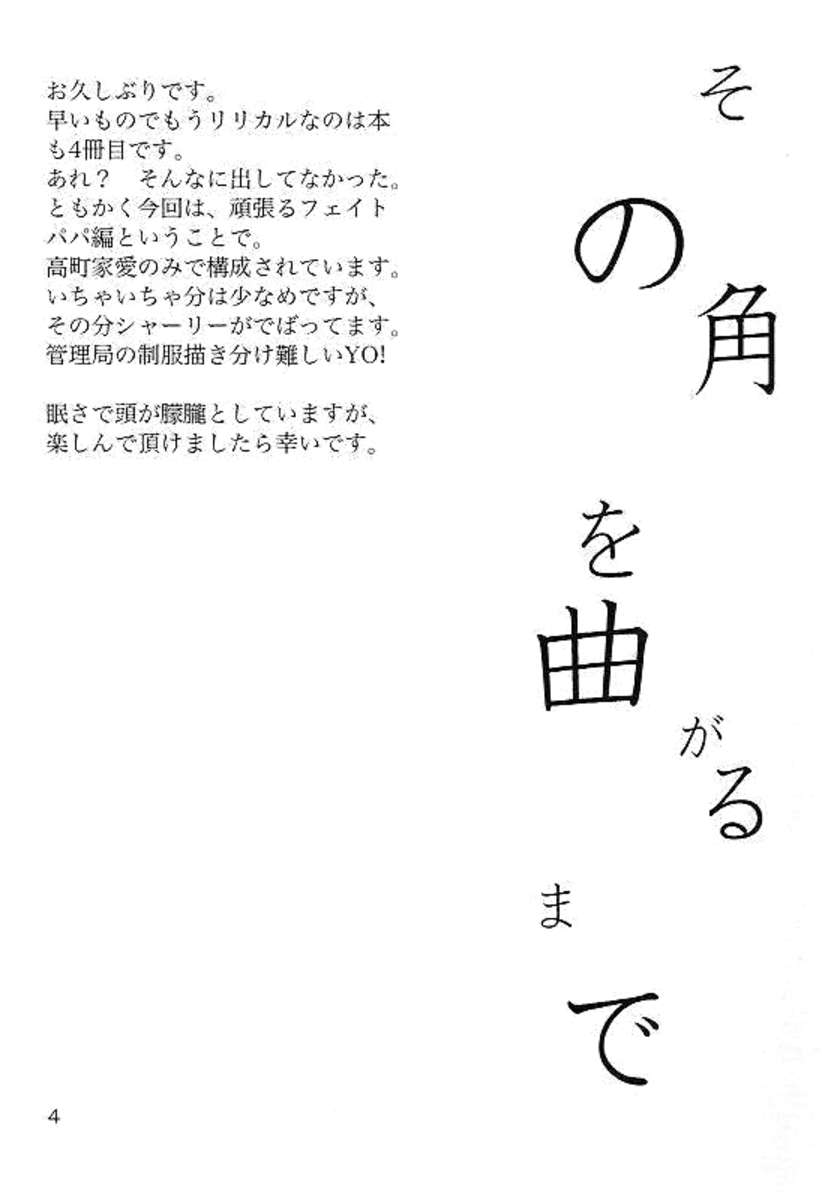 その角を曲がるまで
お久しぶりです。
早いものでもうリリカルなのは本
も4冊目です。
あれ？　そんなに出してなかった。
ともかく今回は、頑張るフェイト
パパ編ということで。
高町家愛のみで構成されています。
いちゃいちゃ分は少なめですが、
その分シャーリーがでばってます。
管理局の制服描き分け難しいYO!
眠さで頭が朦朧としていますが、
楽しんで頂けましたら幸いです。
4